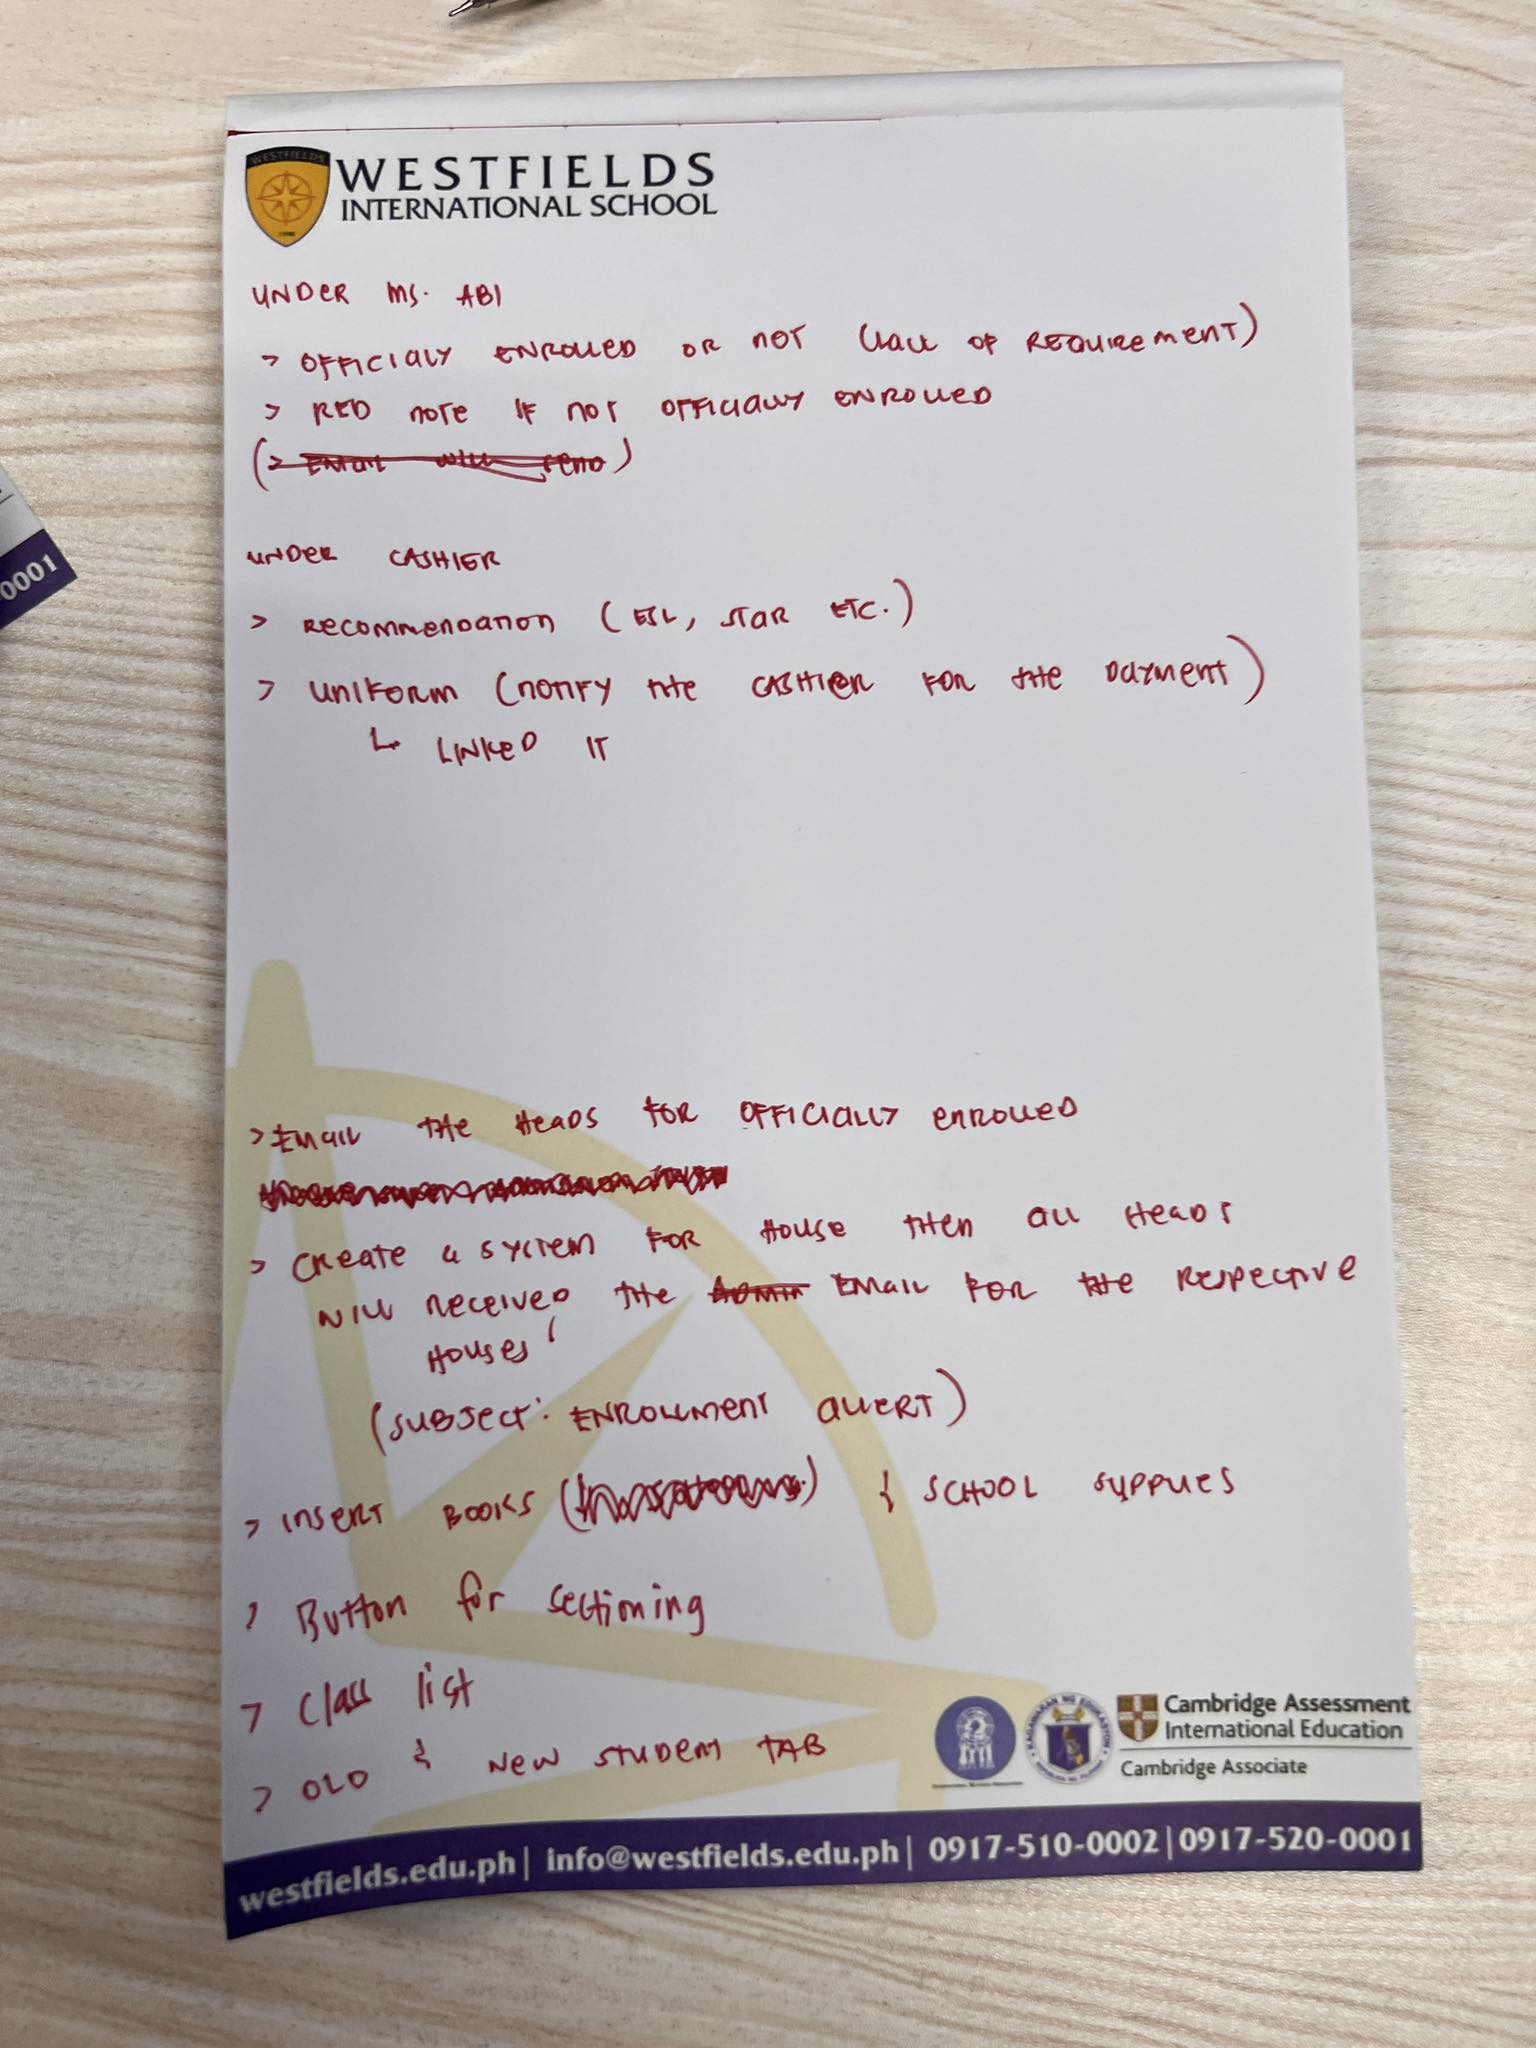 WESTFIELDS
WESTFIELDS
INTERNATIONAL SCHOOL
UNDER MS. ABI
> OFFICIALY ENROLLED OR NOT (LACK OF REQUIREMENT)
> RED NOTE IF NOT OFFICIALLY ENROLLED
(> EMAIL WILL SEND)
UNDER CASHIER
> RECOMMENDATION (ESL, STAR ETC.)
> UNIFORM (NOTIFY THE CASHIER FOR THE PAYMENT)
↳ LINKED IT
> EMAIL THE HEADS FOR OFFICIALLY ENROLLED
> CREATE A SYSTEM FOR HOUSE THEN ALL HEADS
WILL RECEIVED THE ADMIN EMAIL FOR THE RESPECTIVE
HOUSES
(SUBJECT: ENROLLMENT ALERT)
> INSERT BOOKS ( ) & SCHOOL SUPPLIES
> Button for sectioning
> Class list
> OLD & NEW STUDENT TAB
Cambridge Assessment
International Education
Cambridge Associate
westfields.edu.ph | info@westfields.edu.ph | 0917-510-0002 | 0917-520-0001
0001